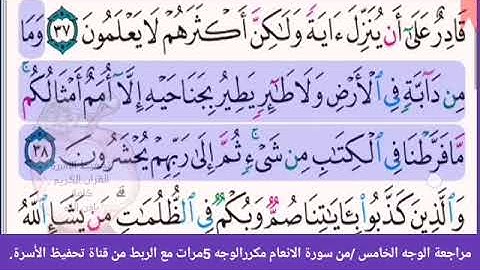 قَادِرٌ عَلَىٰٓ أَن يُنَزِّلَ ءَايَةً وَلَٰكِنَّ أَكۡثَرَهُمۡ لَا يَعۡلَمُونَ ٣٧ وَمَا
مِن دَآبَّةٖ فِي ٱلۡأَرۡضِ وَلَا طَٰٓئِرٖ يَطِيرُ بِجَنَاحَيۡهِ إِلَّآ أُمَمٌ أَمۡثَالُكُمۚ
مَّا فَرَّطۡنَا فِي ٱلۡكِتَٰبِ مِن شَيۡءٖۚ ثُمَّ إِلَىٰ رَبِّهِمۡ يُحۡشَرُونَ ٣٨
وَٱلَّذِينَ كَذَّبُواْ بِـَٔايَٰتِنَا صُمّٞ وَبُكۡمٞ فِي ٱلظُّلُمَٰتِۗ مَن يَشَإِ ٱللَّهُ
مراجعة الوجه الخامس /من سورة الانعام مكررالوجه 5مرات مع الربط من قناة تحفيظ الأسرة.